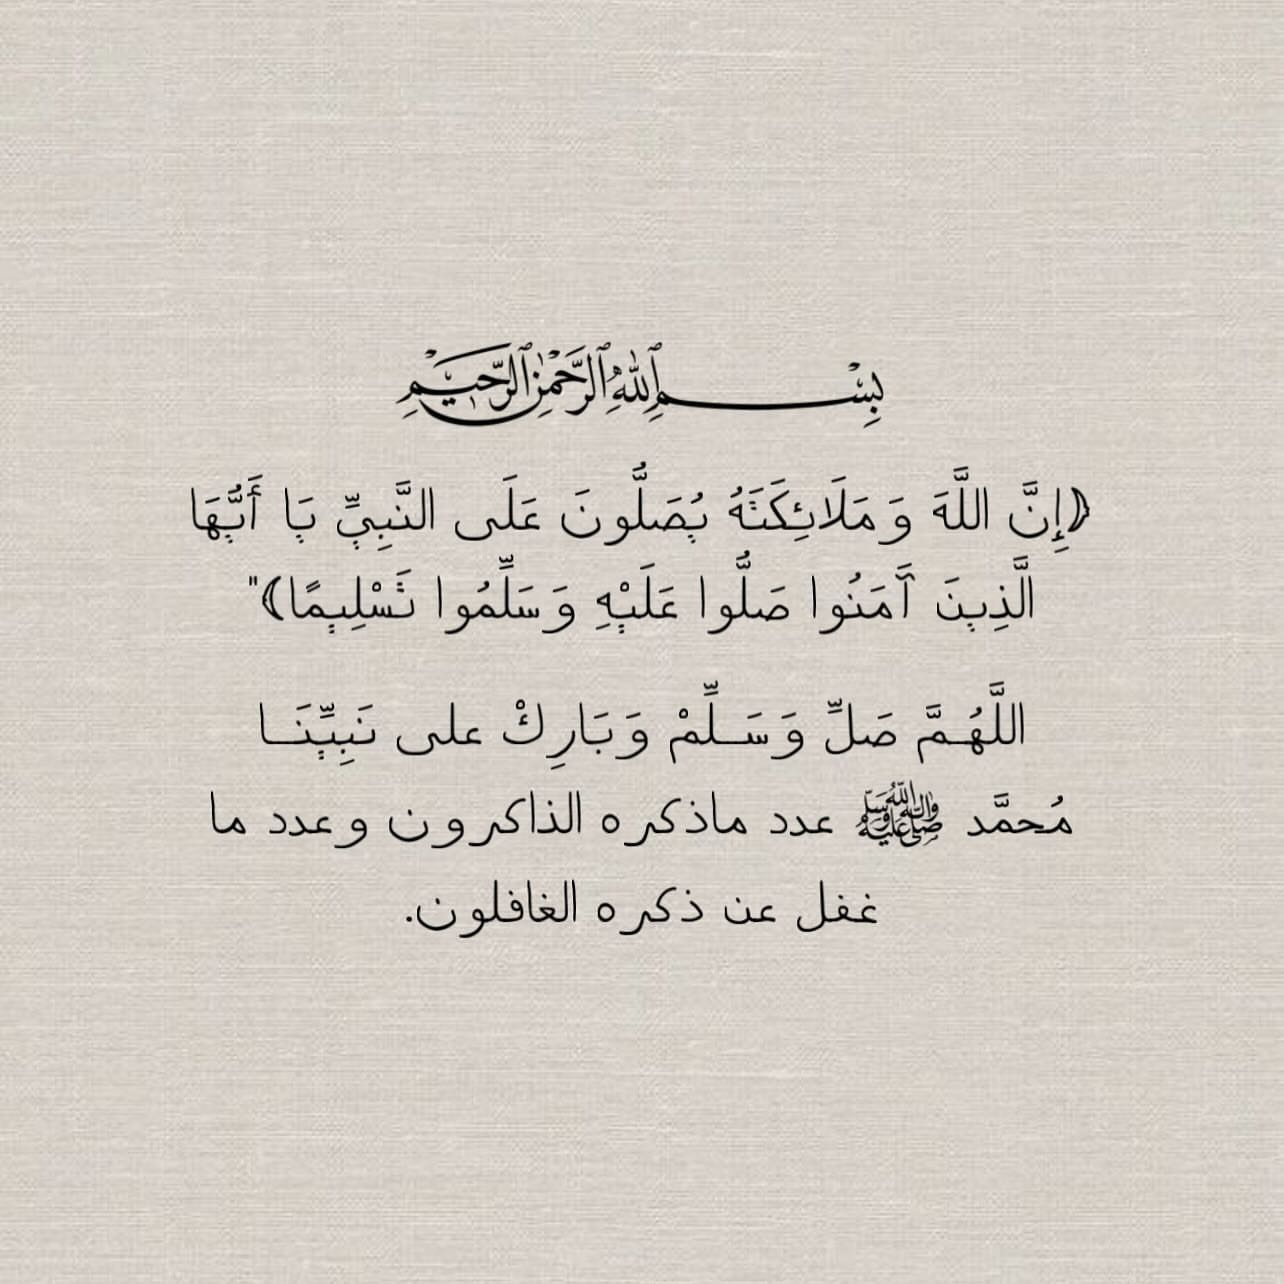 بِسْمِ ٱللَّهِ ٱلرَّحْمَٰنِ ٱلرَّحِيمِ
﴿إِنَّ اللَّهَ وَمَلَائِكَتَهُ يُصَلُّونَ عَلَى النَّبِيِّ يَا أَيُّهَا
الَّذِينَ آَمَنُوا صَلُّوا عَلَيْهِ وَسَلِّمُوا تَسْلِيمًا﴾"
اللَّهُـمَّ صَلِّ وَسَــلِّمْ وَبَارِكْ على نَبِيِّنَــا
مُحمَّد ﷺ عدد ماذكره الذاكرون وعدد ما
غفل عن ذكره الغافلون.